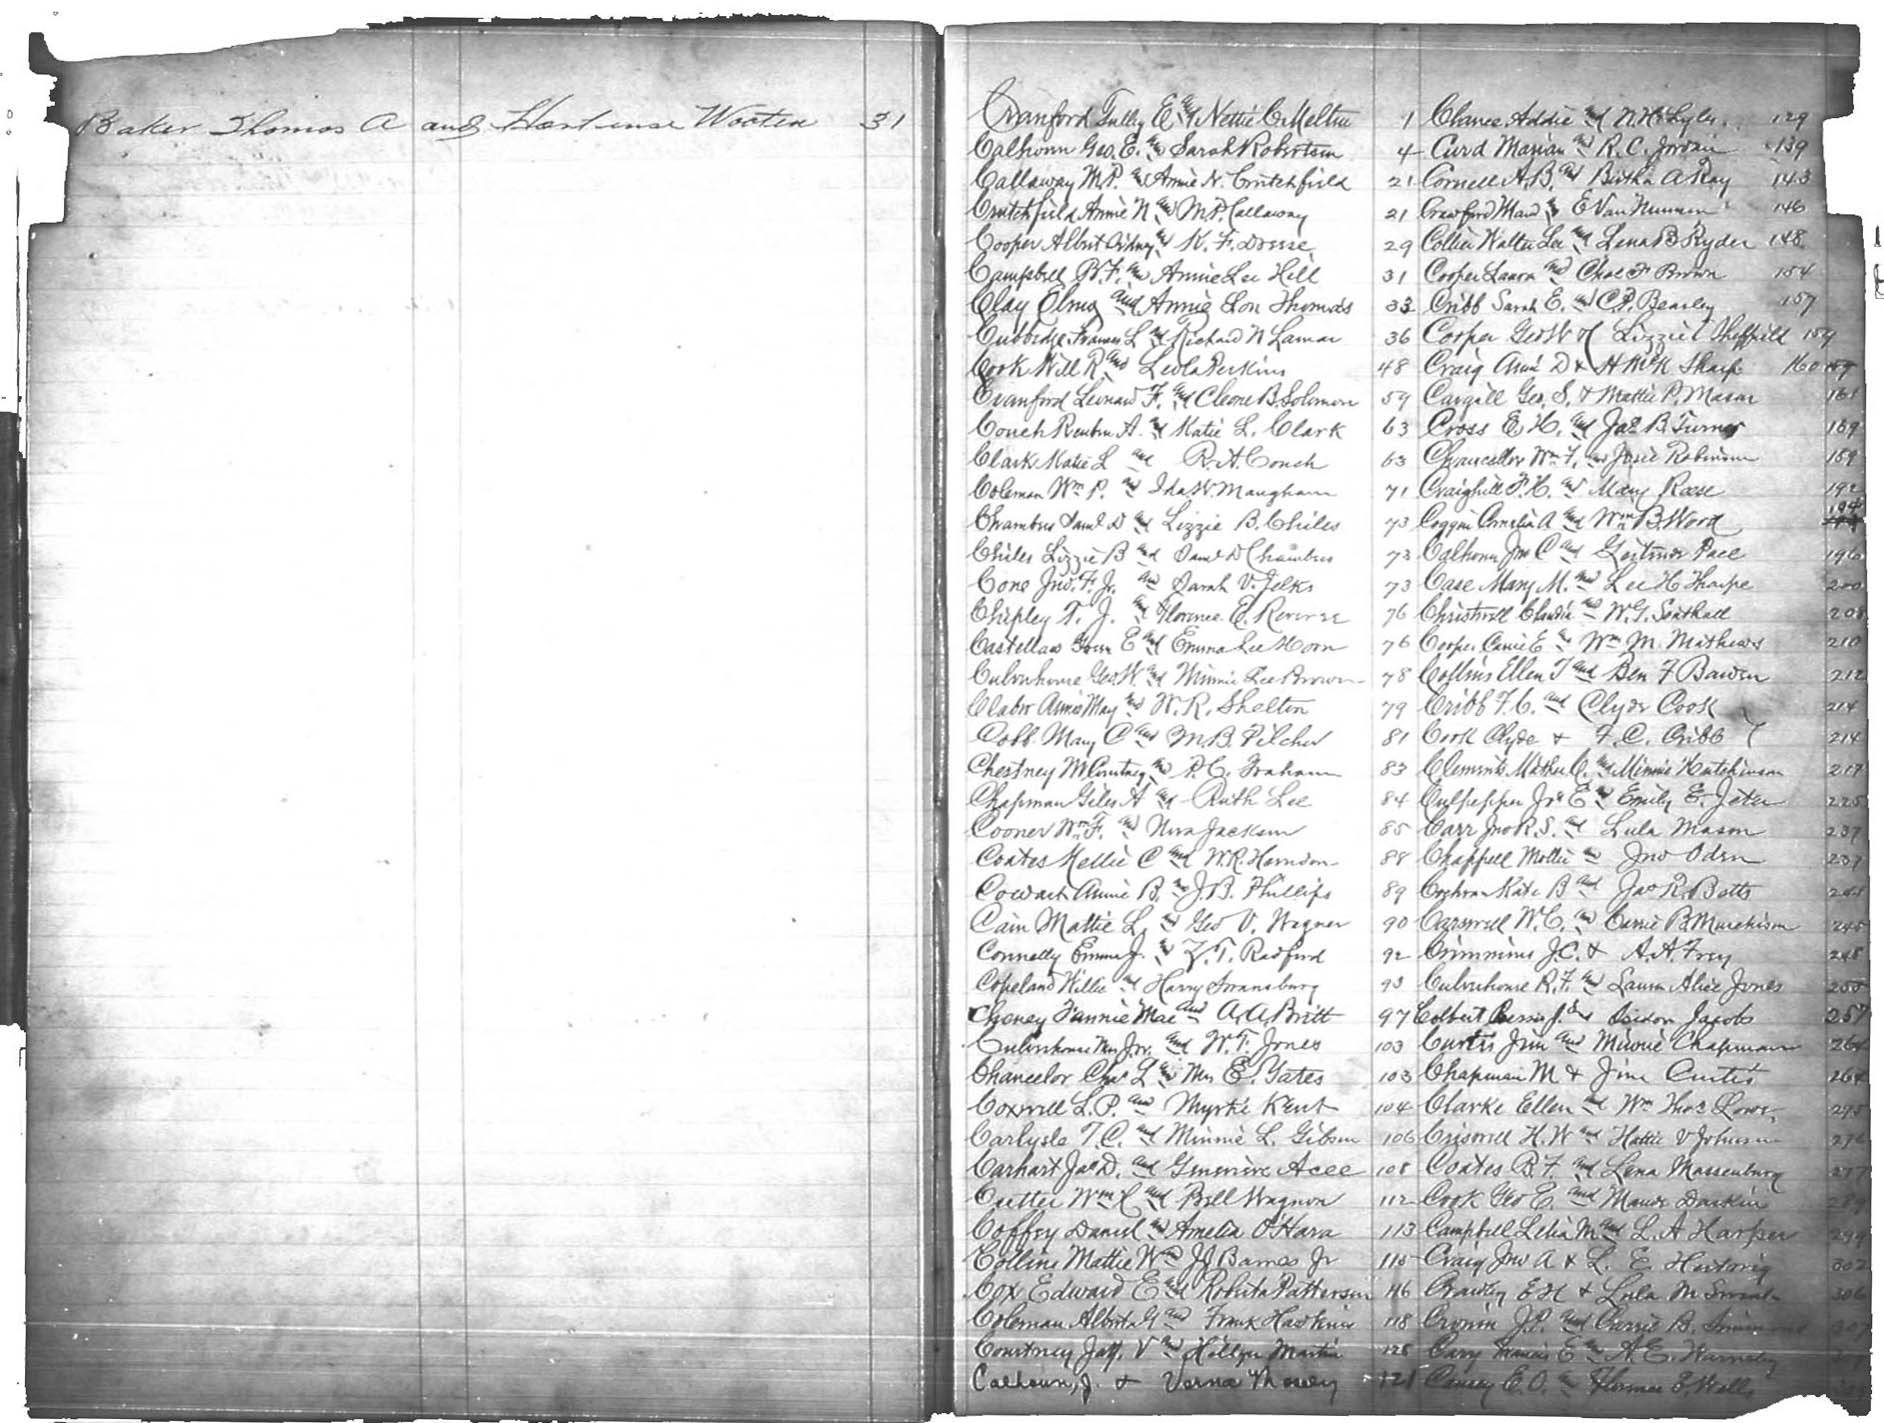 Baker Thomas A and Hortense Wooten 31
Cranford Tully E and Nettie O Melton 1
Calhoun Geo. E. and Sarah Robertson 4
Callaway M.P. and Annie N. Crutchfield 21
Crutchfield Annie N and M.P. Callaway 21
Cooper Albert Sidney and K. F. 29
Campbell B.F. and Annie Lee Hill 31
Clay Elmo and Annie Lou Thomas 33
Cubbedge Frances L and Richard N Lamar 36
Cook Will R and Leola Perkins 48
Cranford Leonard F. and Cleone B. Solomon 59
Couch Reuben A. and Katie L. Clark 63
Clark Katie L and R.A. Couch 63
Coleman Wm P. and Ida W. Maugham 71
Chambers Saml D and Lizzie B. Chiles 73
Chiles Lizzie B and Saml D Chambers 73
Cone Jno. F. Jr. and Sarah V. Jelks 73
Chipley T. J. and Florence E. 76
Castellaw E and Emma Lee Horn 76
Culverhouse Geo. W. and Minnie Lee Brown 78
Annie May and W. R. Shelton 79
Cobb Mary C and M.B. Pilcher 81
Chestney M Courtney and P. C. Graham 83
Chapman Giles A and Ruth Lee 84
Cooner Wm F. and Nora Jackson 85
Coates Nellie C and W.R. Herndon 88
Cowart Annie B. and J.B. Phillips 89
Cain Mattie L. and Geo V. Wagner 90
Connelly Emma J. and Z. T. Radford 92
Copeland Willie and Harry Swansburg 93
Cheney Fannie Mae and A. A. Britt 97
Culverhouse Mrs Jno. and W. T. Jones 103
Chancelor Chas L and Mrs E. Yates 103
Coxwell L.P. and Myrtie Kent 104
Carlysle T.C. and Minnie L. Gibson 106
Carhart Jas D. and Genevieve Acee 108
Carter Wm H and Bell Wagnon 112
Coffey Daniel and Amelia O'Hara 113
Collins Mattie W and J.J. Barnes Jr 115
Cox Edward E and Roberta Patterson 116
Coleman Alberta G and Frank Hawkins 118
Courtney Jaff. V and Hillyer Martin 125
Calhoun, J. + Verna Mosely 121
Chance Addie and N.H. Lyles 129
Curd Marian and R.C. Jordan 139
Cornell A.B. and Birtha A Ray 143
Crawford Maud & E Van Nunnen 146
Collier Walter Lee and Lena B Ryder 148
Cooper Laura and Chas F Brown 154
Cribb Sarah E. and C.P. Beasley 157
Cooper Geo W & Lizzie Sheffield 159
Craig Annie D & H McK Sharp 160
Cargill Geo. S. & Mattie P. Mason 161
Cross E. H. and Jas B. Turner 169
Chancellor Wm F. and Josie Robinson 169
Craighill F.H. and Mary Reese 192
Coggin Cornelia A and Wm B. Wood 194
Calhoun Jno C and Gertrude Pace 196
Case Mary M. and Lee H Tharpe 200
Christwell Claudia and W.G. Southall 208
Cooper Carrie E and Wm M. Mathews 210
Collins Ellen T and Ben F Bowden 212
Cribb F.C. and Clyde Cook 214
Cook Clyde & F. C. Cribb 214
Clements Mathew C. and Minnie Hutchinson 217
Culpepper Jno E and Emily E. Jeter 225
Carr Jno R. S. and Lula Mason 237
Chappell Mollie and Jno Oden 237
Cochran Kate B and Jas R. Botts
Carswell W.C. and Carrie B Murchison 245
Crimmins J.C. & A.A. Frey 248
Culverhouse R.F. and Laura Alice Jones 255
Colbert Bessie J and Isidor Jacobs 257
Curtis Jim and Minnie Chapman 264
Chapman M & Jim Curtis 264
Clarke Ellen and Wm Thos Lowe 275
Criswell H.W and Hattie V Johnson 276
Coates B.F. and Lena Massenburg 277
Cook Geo E. and Maude Daskin 289
Campbell Lelia M and L. A Harper 299
Craig Jno A & L. E. Hertwig 302
Crawley E H & Lula M 306
Cronin J.P. and Carrie B. Simmons 307
Cary Francis E and A.E.
E. O. and Florence E. Wells